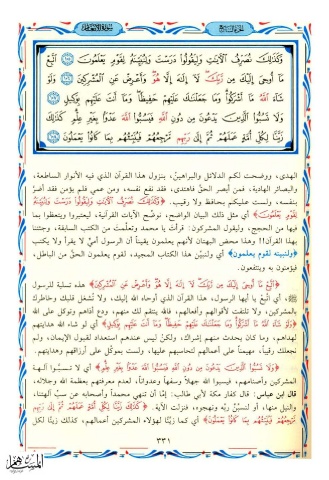 سورة الأنعام
الجزء السابع
وَكَذَٰلِكَ نُصَرِّفُ الْآيَاتِ وَلِيَقُولُوا دَرَسْتَ وَلِنُبَيِّنَهُ لِقَوْمٍ يَعْلَمُونَ ﴿١٠٥﴾ اتَّبِعْ
مَا أُوحِيَ إِلَيْكَ مِن رَّبِّكَ لَا إِلَٰهَ إِلَّا هُوَ وَأَعْرِضْ عَنِ الْمُشْرِكِينَ ﴿١٠٦﴾ وَلَوْ
شَاءَ اللَّهُ مَا أَشْرَكُوا وَمَا جَعَلْنَاكَ عَلَيْهِمْ حَفِيظًا وَمَا أَنتَ عَلَيْهِم بِوَكِيلٍ ﴿١٠٧﴾
وَلَا تَسُبُّوا الَّذِينَ يَدْعُونَ مِن دُونِ اللَّهِ فَيَسُبُّوا اللَّهَ عَدْوًا بِغَيْرِ عِلْمٍ كَذَٰلِكَ
زَيَّنَّا لِكُلِّ أُمَّةٍ عَمَلَهُمْ ثُمَّ إِلَىٰ رَبِّهِم مَّرْجِعُهُمْ فَيُنَبِّئُهُم بِمَا كَانُوا يَعْمَلُونَ ﴿١٠٨﴾
الهدى، ووضحت لكم الدلائل والبراهين، بنزول هذا القرآن الذي فيه الأنوار الساطعة،
والبصائر الهادية، فمن أبصر الحق فاهتدى، فقد نفع نفسه، ومن عمي فلم يؤمن فقد أضرَّ
بنفسه، ولست عليكم بحافظ ولا رقيب. ﴿وَكَذَٰلِكَ نُصَرِّفُ الْآيَاتِ وَلِيَقُولُوا دَرَسْتَ وَلِنُبَيِّنَهُ
لِقَوْمٍ يَعْلَمُونَ﴾ أي مثل ذلك البيان الواضح، نوضّح الآيات القرآنية، ليعتبروا ويتعظوا بما
فيها من الحجج، وليقول المشركون: قرأتَ يا محمد وتعلَّمت من الكتب السابقة، وجئتنا
بهذا القرآن!! وهذا محض البهتان لأنهم يعلمون يقيناً أن الرسول أميٌّ لا يقرأ ولا يكتب
﴿ولنبينه لقوم يعلمون﴾ أي ولنبيِّن هذا الكتاب المجيد، لقوم يعلمون الحقَّ من الباطل،
فيؤمنون به ويتبعون.
﴿اتَّبِعْ مَا أُوحِيَ إِلَيْكَ مِن رَّبِّكَ لَا إِلَٰهَ إِلَّا هُوَ وَأَعْرِضْ عَنِ الْمُشْرِكِينَ﴾ هذه تسلية للرسول
ﷺ، أي اتَّبع يا أيها الرسول، هذا القرآن الذي أوحاه الله إليك، ولا تشغل قلبك وخاطرك
بالمشركين، ولا تلتفت لأقوالهم وأفعالهم، فالله ينتقم لك منهم، ودع أذاهم وتوكل على الله
﴿وَلَوْ شَاءَ اللَّهُ مَا أَشْرَكُوا وَمَا جَعَلْنَاكَ عَلَيْهِمْ حَفِيظًا وَمَا أَنتَ عَلَيْهِم بِوَكِيلٍ﴾ أي لو شاء الله هدايتهم
لهداهم، وما كان يحدث منهم إشراك، ولكنْ ليس عندهم استعداد لقبول الإيمان، ولم
نجعلك رقيباً، مهيمناً على أعمالهم لتحاسبهم عليها، ولست بموكَّل على أرزاقهم وهدايتهم.
﴿وَلَا تَسُبُّوا الَّذِينَ يَدْعُونَ مِن دُونِ اللَّهِ فَيَسُبُّوا اللَّهَ عَدْوًا بِغَيْرِ عِلْمٍ﴾ أي لا تسبُّوا آلهة
المشركين وأصنامهم، فيسبوا الله جهلاً وسفهاً وعدواناً، لعدم معرفتهم بعظمة الله وجلاله،
قال ابن عباس: قال كفار مكة لأبي طالب: إمَّا أن تنهى محمداً وأصحابه عن سبِّ آلهتنا،
والنيل منها، أو لنسبَّنَّ ربَّه ونهجوه، فنزلت الآية. ﴿كَذَٰلِكَ زَيَّنَّا لِكُلِّ أُمَّةٍ عَمَلَهُمْ ثُمَّ إِلَىٰ رَبِّهِم
مَّرْجِعُهُمْ فَيُنَبِّئُهُم بِمَا كَانُوا يَعْمَلُونَ﴾ أي كما زيَّنَّا لهؤلاء المشركين أعمالهم، كذلك زيَّنا لكل
٣٣١